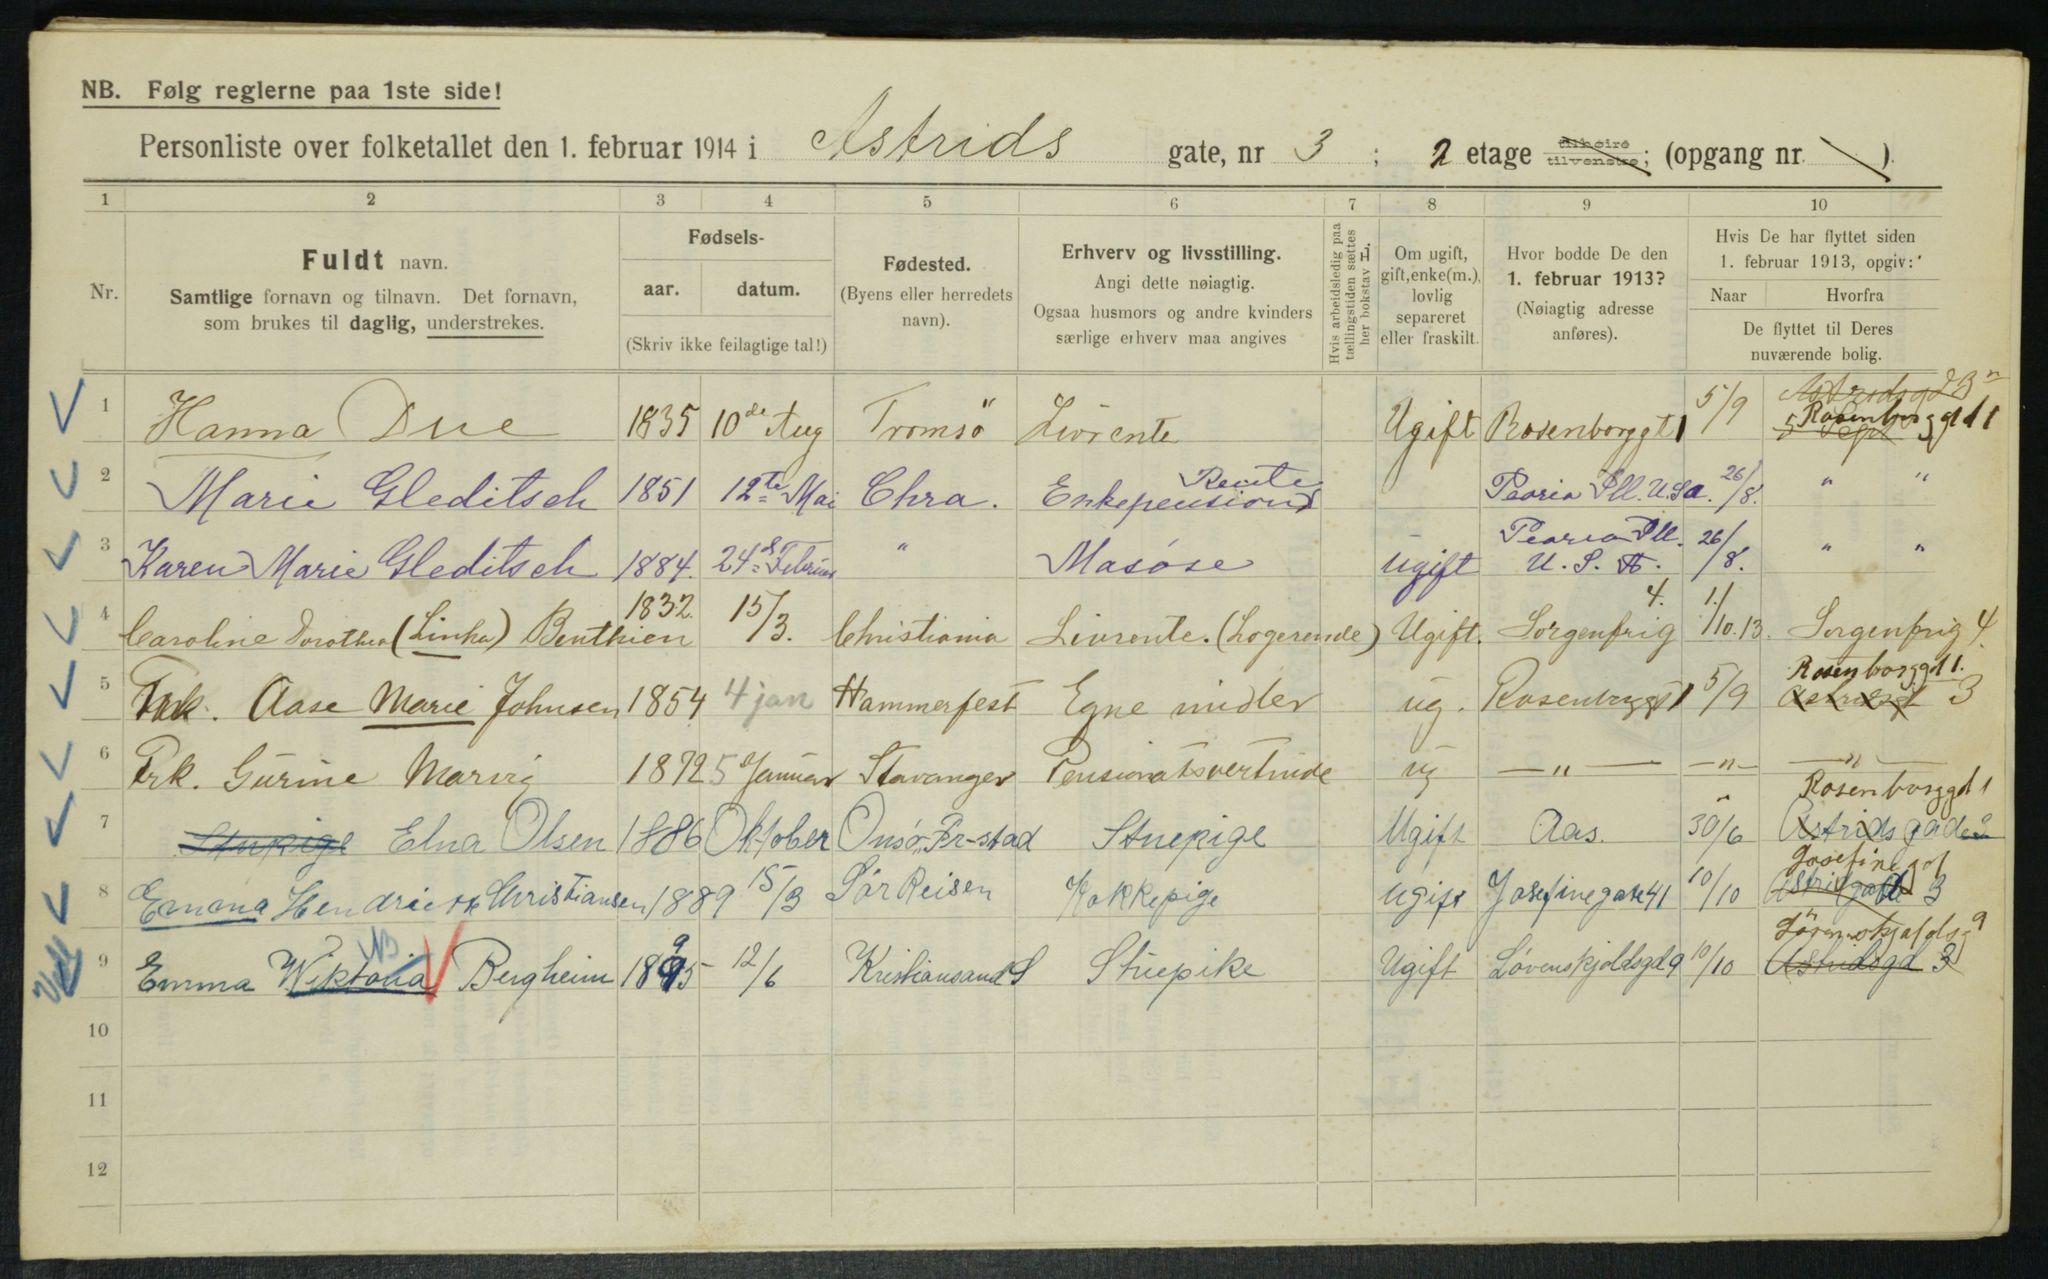 NB. Følg reglerne paa 1ste side!
Personliste over folketallet den 1. februar 1914 i Astrids gate, nr 3 ; 2 etage tilhøire tilvenstre; (opgang nr. )
1 2 3 4 5 6 7 8 9 10
Nr.
Fuldt navn.
Samtlige fornavn og tilnavn. Det fornavn,
som brukes til daglig, understrekes.
Fødsels-
aar. datum.
(Skriv ikke feilagtige tal!)
Fødested.
(Byens eller herredets
navn).
Erhverv og livsstilling.
Angi dette nøiagtig.
Ogsaa husmors og andre kvinders
særlige erhverv maa angives
Hvis arbeidsledig paa
tællingstiden sættes
her bokstav L.
Om ugift,
gift, enke(m.),
lovlig
separeret
eller fraskilt.
Hvor bodde De den
1. februar 1913?
(Nøiagtig adresse
anføres).
Hvis De har flyttet siden
1. februar 1913, opgiv:
Naar Hvorfra
De flyttet til Deres
nuværende bolig.
1 Hanna Due 1835 10de Aug Tromsö Livrente Ugift Rosenborggt 1 5/9 Rosenborggd 1
2 Marie Gleditsch 1851 12te Mai Chra. Enkepension Rente Peoria Ill. U.S.a. 26/8. " "
3 Karen Marie Gleditsch 1884. 24d Februar " Masøse Ugift Peoria Ill. U. S. A. 26/8. " "
4 Caroline Dorothea (Linka) Benthien 1832. 15/3. Christiania Livrente. (Logerende) Ugift. Sorgenfrig 4. 1/10.13. Sorgenfrig 4
5 Frk. Aase Marie Johnsen 1854 4 jan Hammerfest Egne midler ug. Rosenborggt 1 5/9 Rosenborggd 1. 3
6 Frk. Gurine Marvig 1872 5 Januar Stavanger Pensionatsvertinde ug — " — — " — — " —
7 Stuepige Elna Olsen 1886 Oktober Onsø, Fr-stad Stuepige Ugift Aas. 30/6 Rosenborggd 1 Astridsgade
8 Emma Hendriette Christiansen 1889 15/3 Sør Reisen Kokkepige Ugift Josefinegate 41 10/10 3
9 Emma Wiktoria Bergheim 1895 12/6 Kristiansand S Stuepike Ugift Løvenskjoldsgd 9 10/10 Løvenskjoldsg 9 Astridsgd 3
10
11
12